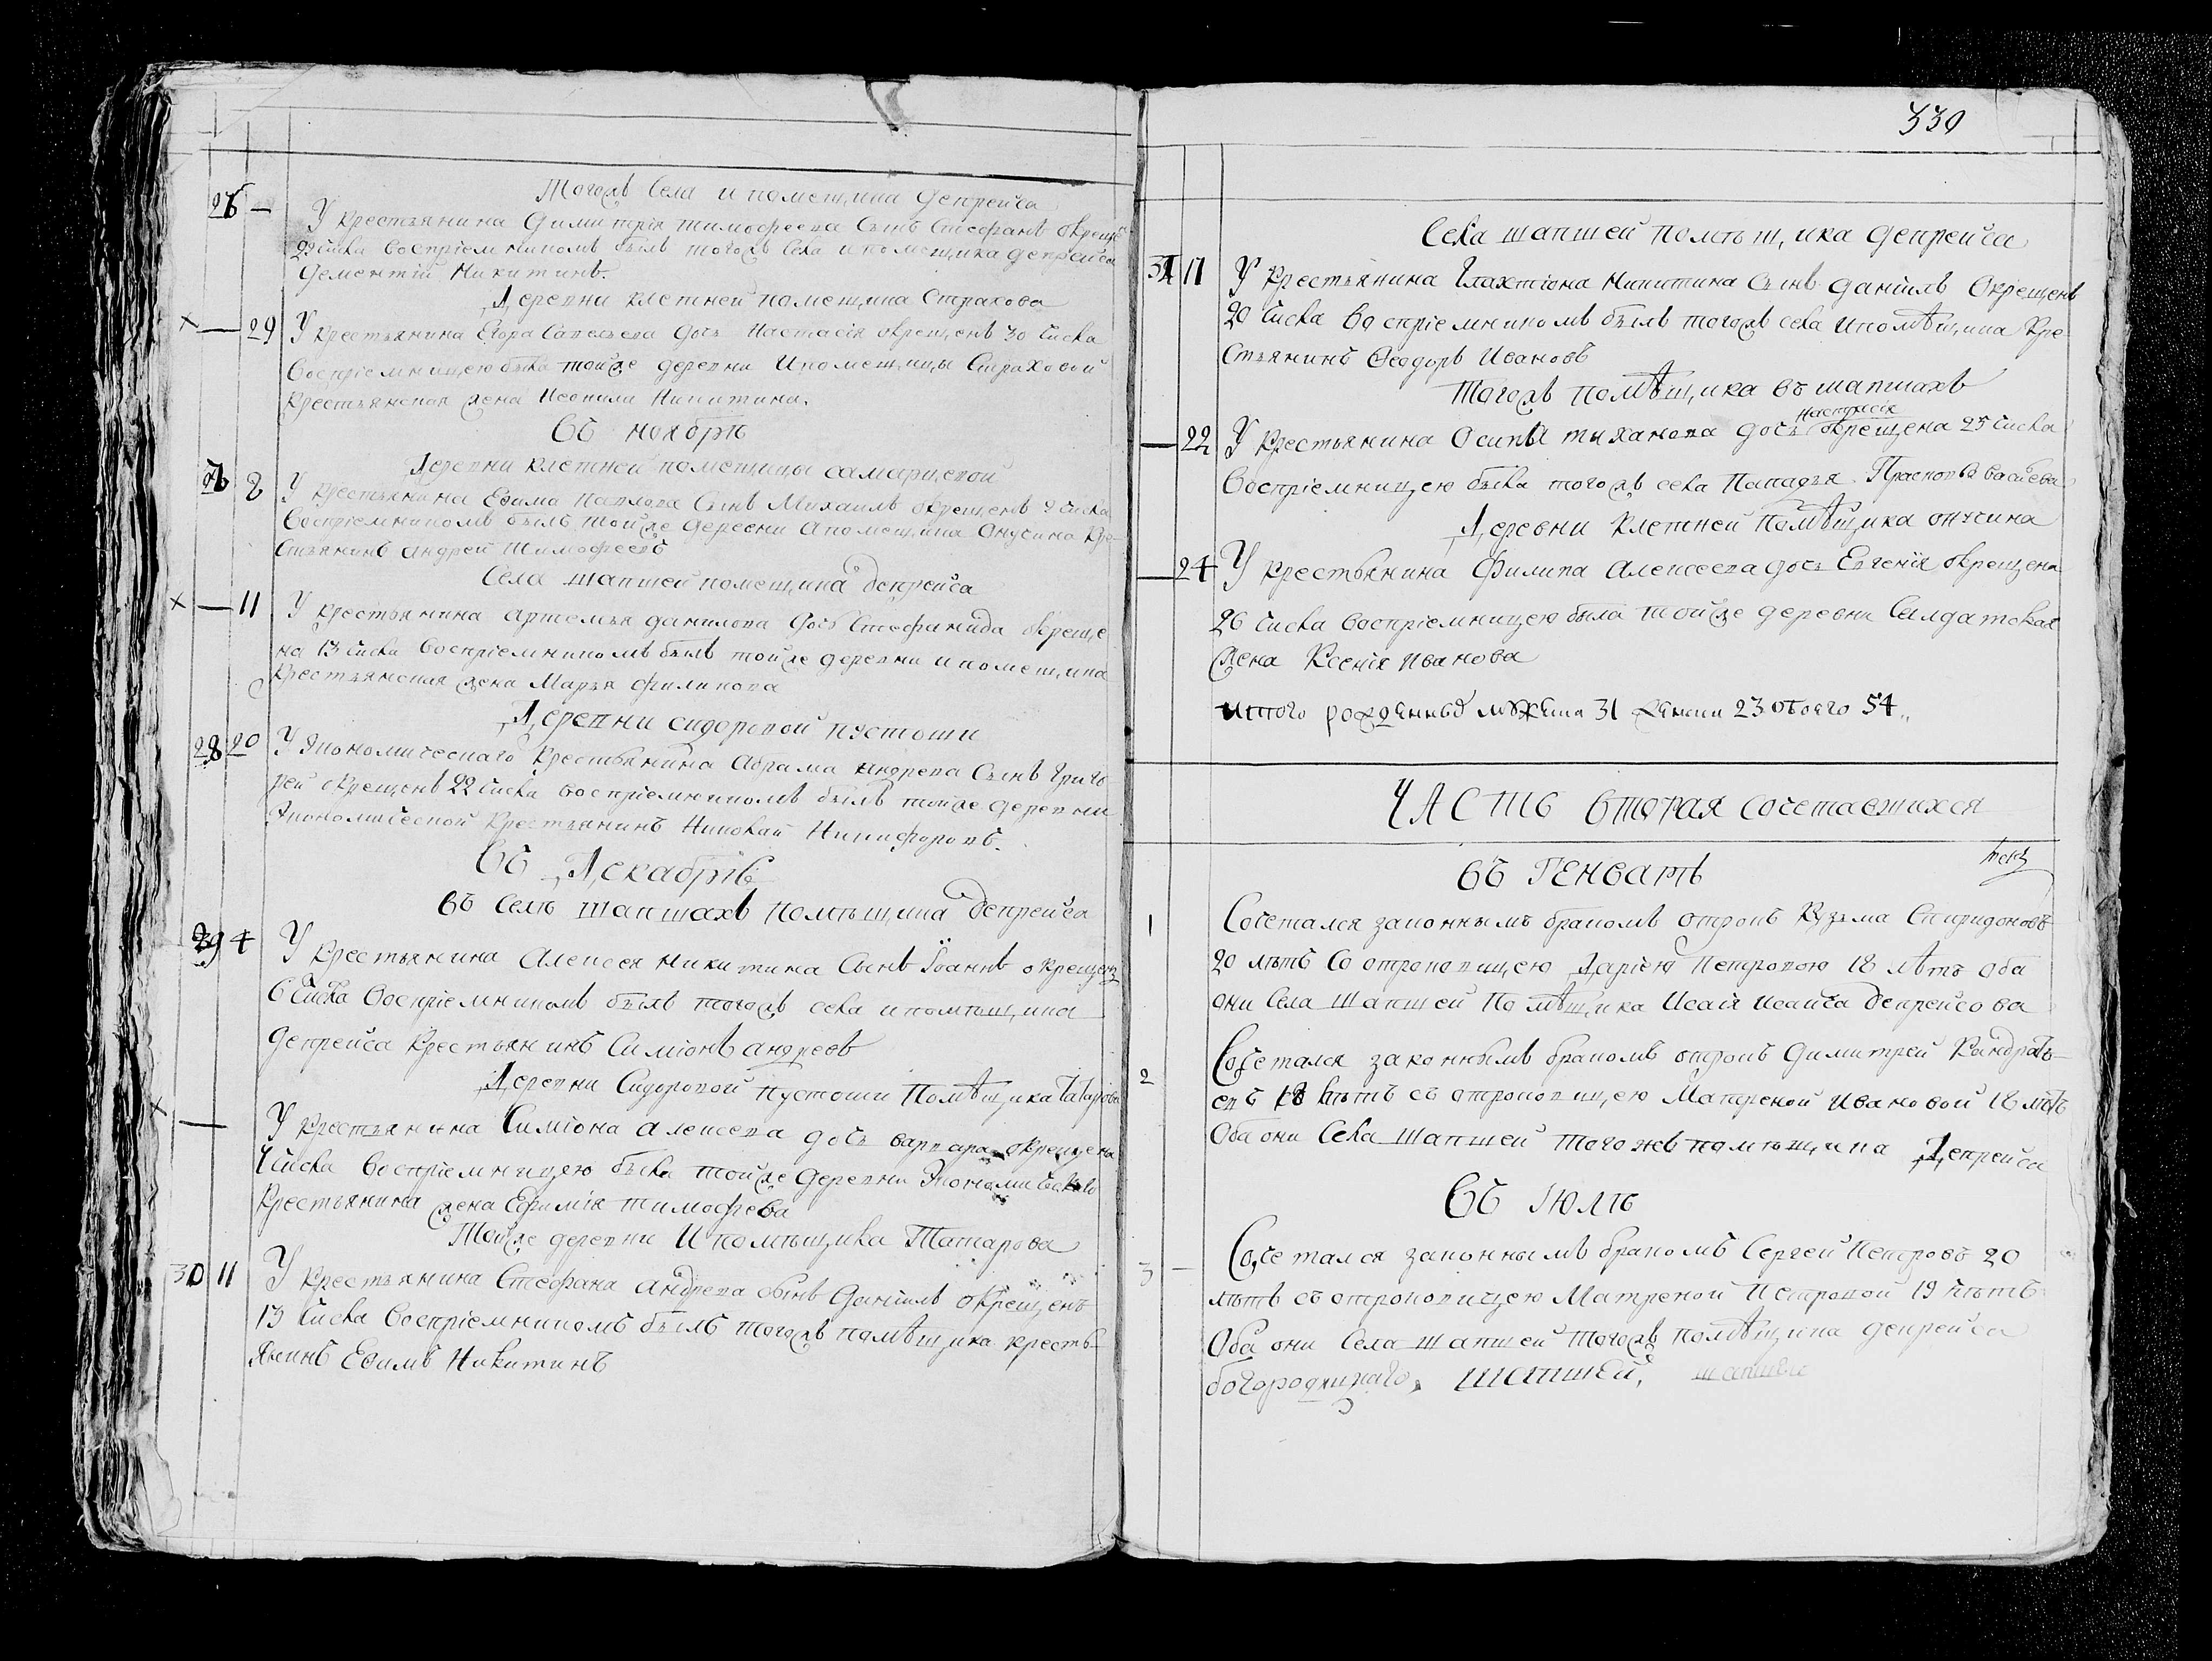 Тогожъ Села и помещика Депрейса
26 — У крестьянина Димитрія тимофеева Сынъ Стефанъ окреще
29 числа воспріемникомъ былъ тогожъ Села и помещика депрейса
Дементій Никитинъ.
Деревни клетней помещика Страхова
× — 29 У крестьянина Егора Савельева дочь Настасія окрещенъ 30 числа
Воспріемницею была тойже деревни И помещицы Страховой
крестьянская жена Никитина.
Въ ноябрѣ
Деревни клетней помещицы самарицевой
8 У крестьянина Ефима Павлова Сынъ Михаилъ окрещенъ 9 числа
Воспріемникомъ былъ тойже деревни а помещика Онучина Кре-
стьянинъ андрей Тимофеевъ
Села шапшей помещика депрейса
× — 11 У крестьянина артемья данилова дочь Стефанида окреще
на 13 числа Воспріемникомъ былъ тойже деревни и помещика
Крестьянская жена Марья филипова
Деревни сидоровой пустоши
28 20 У экономическаго крестьянина Абрама андрева Сынъ Григо
рей окрещенъ 22 числа воспріемникомъ былъ тойже деревни
экономической крестьянинъ Николай Никифоровъ.
Въ Декабрѣ
въ Селѣ шапшахъ помѣщика депрейса
29 4 У крестьянина Алексея никитина Сынъ Іоаннъ окрещенъ
6 числа Воспріемникомъ былъ тогожъ села и помѣщика
депрейса крестьянинъ Симіонъ андреевъ
Деревни Сидоровой пустоши Помѣщика Татарова
× — У крестьянина Симіона алексева дочь варвара окрещена
числа воспріемницею была тойже деревни Экономическаго
крестьянина жена Ефимія тимофева
Тойже деревни И помѣщика Татарова
30 11 У крестьянина Стефана андрева сынъ Даніилъ окрещенъ
13 числа воспріемникомъ былъ тогожъ помѣщика кресть-
янинъ Ефимъ Никитинъ
330
Села шапшей помѣщика депрейса
31 17 У крестьянина Галахтіона Никитина Сынъ даніилъ Окрещенъ
20 числа Воспріемникомъ былъ тогожъ села и помѣщика Кре
стьянинъ Феодоръ Ивановъ
Тогожъ помѣщика въ шапшахъ
настасія
— 22 У крестьянина Осипа тиханова дочь окрещена 25 числа
Воспріемницею была тогожъ села Попадья
Деревни клетней помѣщика онучина
— 24 У крестьянина Филипа Алексеева дочь Евгенія окрещена
26 числа воспріемницею была тойже деревни Салдатская
жена Ксенія Иванова
Итого рожденныхъ 31 23 обоего 54
ЧАСТЬ вторая сочетавшихся
Въ ГЕНВАРѢ
1 Сочетался законнымъ бракомъ отрокъ Кузьма Спиридоновъ
20 лѣтъ со отроковицею Дарією Петровою 18 лѣтъ Оба
они Села Шапшей Помѣщика Исаія Исаича депрейсова
2 Сочетался законнымъ бракомъ отрокъ Димитрей Кондрать
евъ 18 лѣтъ съ отроковицею Матреной Ивановой 18 лѣтъ
Оба они Села Шапшей тогожъ помѣщика Депрейса
Въ Іюлѣ
3 — Сочетался законнымъ бракомъ Сергей Петровъ 20
лѣтъ съ отроковицею Матреной Петровой 19 лѣтъ
Оба они Села шапшей тогожъ помѣщика депрейса
шапшей, шапшей